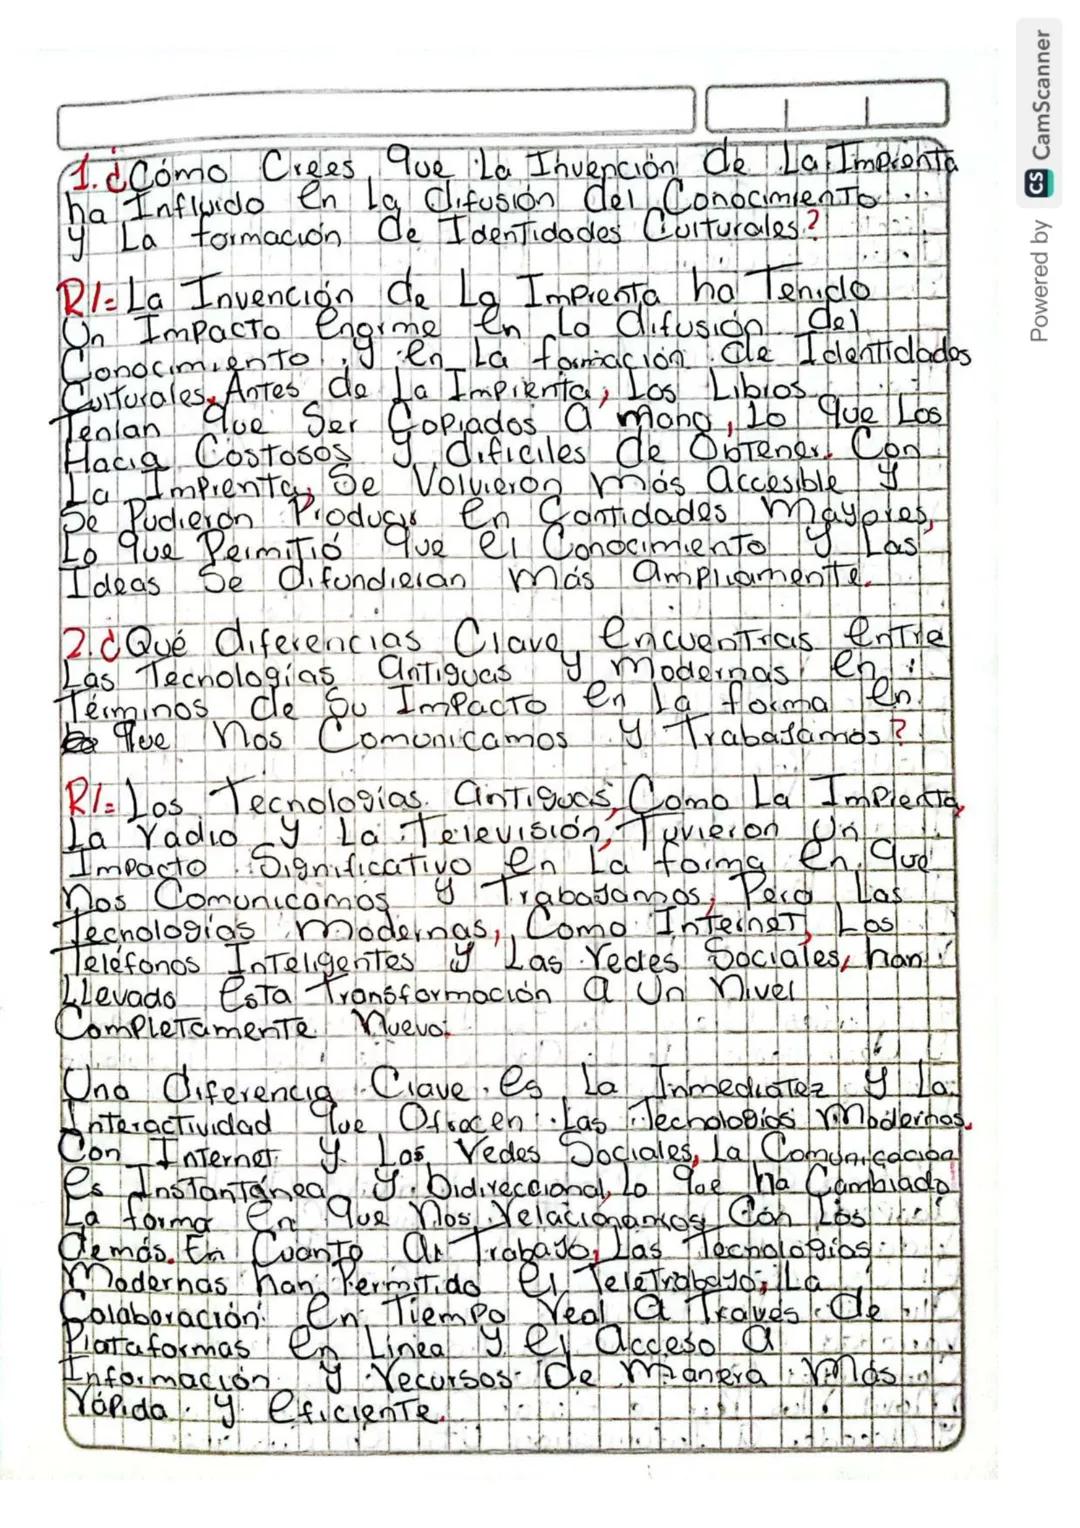 1. ¿Cómo Crees que La Invención de La Imprenta
ha Influido en La difusión del Conocimiento
y La formación de Identidades Culturales?
R/= La Invención de La Imprenta ha Tenido
Un Impacto Enorme en La difusión del
Conocimiento y en La formación de Identidades
Culturales. Antes de La Imprenta, Los Libros
Tenían que Ser Copiados a mano, Lo que Los
Hacia Costosos y dificiles de Obtener. Con
La Imprenta, Se Volvieron más accesible y
Se Pudieron Producir en Cantidades mayores,
Lo que Permitió que el Conocimiento y Las
Ideas Se difundieran más ampliamente.
2. ¿Qué diferencias Clave encuentras entre
Las Tecnologías antiguas y modernas en
Términos de Su Impacto en La forma en
que nos Comunicamos y Trabajamos?
R/= Las Tecnologías antiguas, Como La Imprenta,
La radio y La Televisión, Tuvieron Un
Impacto Significativo en La forma en que
nos Comunicamos y Trabajamos, Pero Las
Tecnologías modernas, Como Internet, Los
Teléfonos Inteligentes y Las redes Sociales, han
LLevado esta Transformación a Un nivel
Completamente nuevo.
Una diferencia Clave es La Inmediatez y La
Interactividad que Ofrecen Las Tecnologías modernas.
Con Internet y Los redes Sociales, La Comunicación
es Instantánea y bidireccional, Lo que ha Cambiado
La forma en que nos relacionamos Con Los
demás. En Cuanto al Trabajo, Las Tecnologías
Modernas han Permitido el Teletrabajo, La
Colaboración en Tiempo real a Través de
Plataformas en Línea y el acceso a
Información y recursos de manera más
rápida y eficiente.
Powered by CS CamScanner